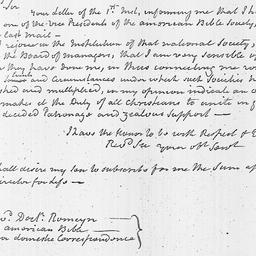 Sir
Your Letter of the 1st Inst, informing me that I ha
one of the vice Presidents of the American Bible Society,
last mail—
I rejoice in the Institution of that national Society,
the Board of managers, that I am very sensible of
they have done me, in thus connecting me
and circumstances under which such Societies ha
shed and multiplied, in my opinion indicate an
makes it the Duty of all Christians to unite in g
decided Patronage and zealous support—
I have the honor to be with Respect & E
Revd Sir your obt Servt
hall desire my Son to subscribe for me the Sum of
irector for Life—
Docr. Romeyn
American Bible
or domestic Correspondence